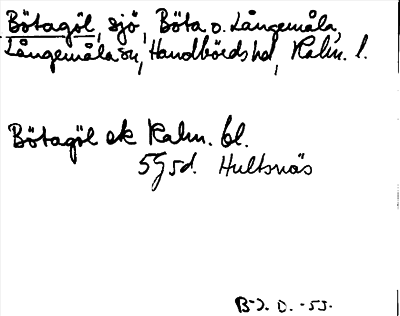 Bötagöl, sjö, Böta o. Långemåla,
Långemåla sn, Handbörds hd, Kalm. l.
Bötagöl ek Kalm. bl.
5G5d. Hultsnäs
B-J. O. -53.